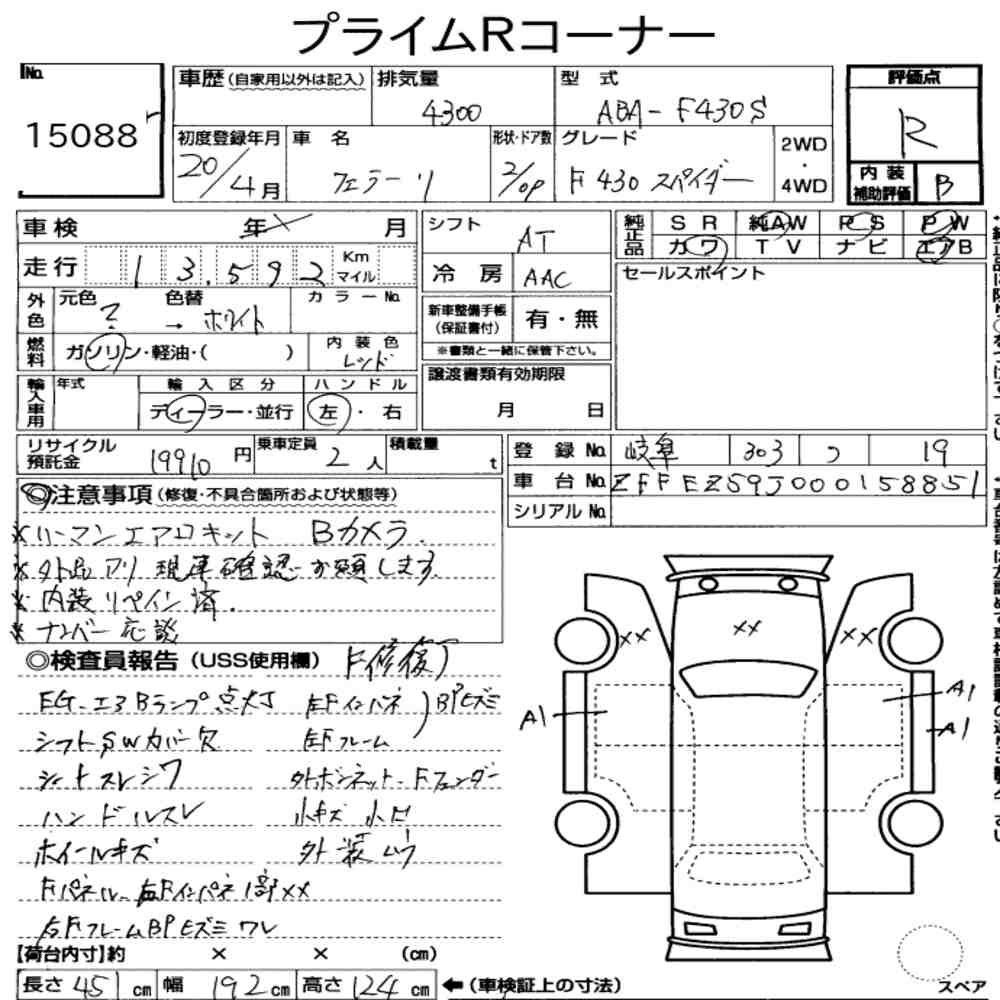 プライムRコーナー
No. 15088
車歴(自家用以外は記入) 排気量 4300 型式 ABA-F430S
評価点 R
初度登録年月 20/4月 車名 フェラーリ 形状・ドア数 2/OP グレード F430 スパイダー 2WD・4WD
内装補助評価 B
車検 年 月 シフト AT
純正品 SR 純AW PS PW
カワ TV ナビ エアB
走行 13,592 Km マイル
冷房 AAC
セールスポイント
外色 元色 ? 色替 → ホワイト カラーNo.
新車整備手帳(保証書付) 有・無
※書類と一緒に保管下さい。
燃料 ガソリン・軽油・( ) 内装色 レッド
輸入車用 年式 輸入区分 ディーラー・並行 ハンドル 左・右
譲渡書類有効期限 月 日
リサイクル預託金 19910円 乗車定員 2人 積載量 t
登録No. 岐阜 303 つ 19
車台No. ZFFEZS9J000158851
シリアルNo.
◎注意事項(修復・不具合箇所および状態等)
※ハーマンエアロキット Bカメラ.
※外品アリ 現車確認お願します.
※内装リペイン済.
※ナンバー応談
◎検査員報告(USS使用欄) F修復了
EG-エアBランプ点灯 左Fインパネ )BPヒズミ
シフトSWカバー欠 左Fフレーム
シートスレシワ 外ボンネット-Fフェンダー
ハンドルスレ 小キズ 小凹
ホイールキズ 外装ムラ
Fパネル-右Fインパネ1部××
右FフレームBPヒズミワレ
×× ×× ××
A1 A1
A1
【荷台内寸】約 × × (cm)
長さ 451cm 幅 192cm 高さ 124cm ←(車検証上の寸法)
スペア